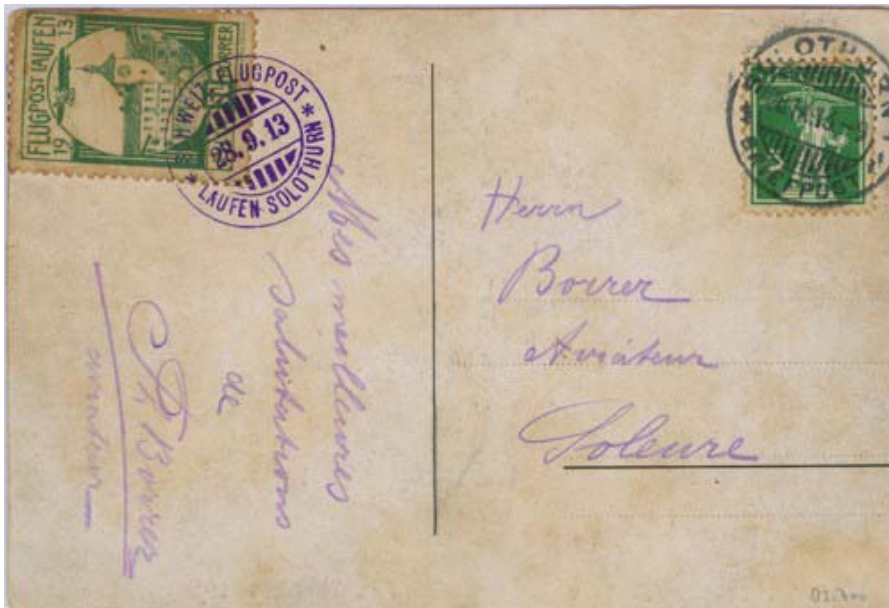 FLUGPOST LAUFEN
19 13
BORRER
SCHWEIZ. FLUGPOST
28.9.13
* LAUFEN-SOLOTHURN *
Mes meilleures
salutations
de
Th Borrer
aviateur
Herrn
Borrer
Aviateur
Soleure